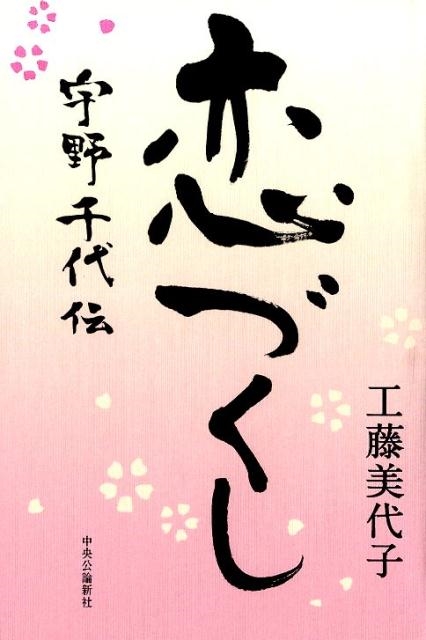 恋づくし
宇野千代伝
工藤美代子
中央公論新社